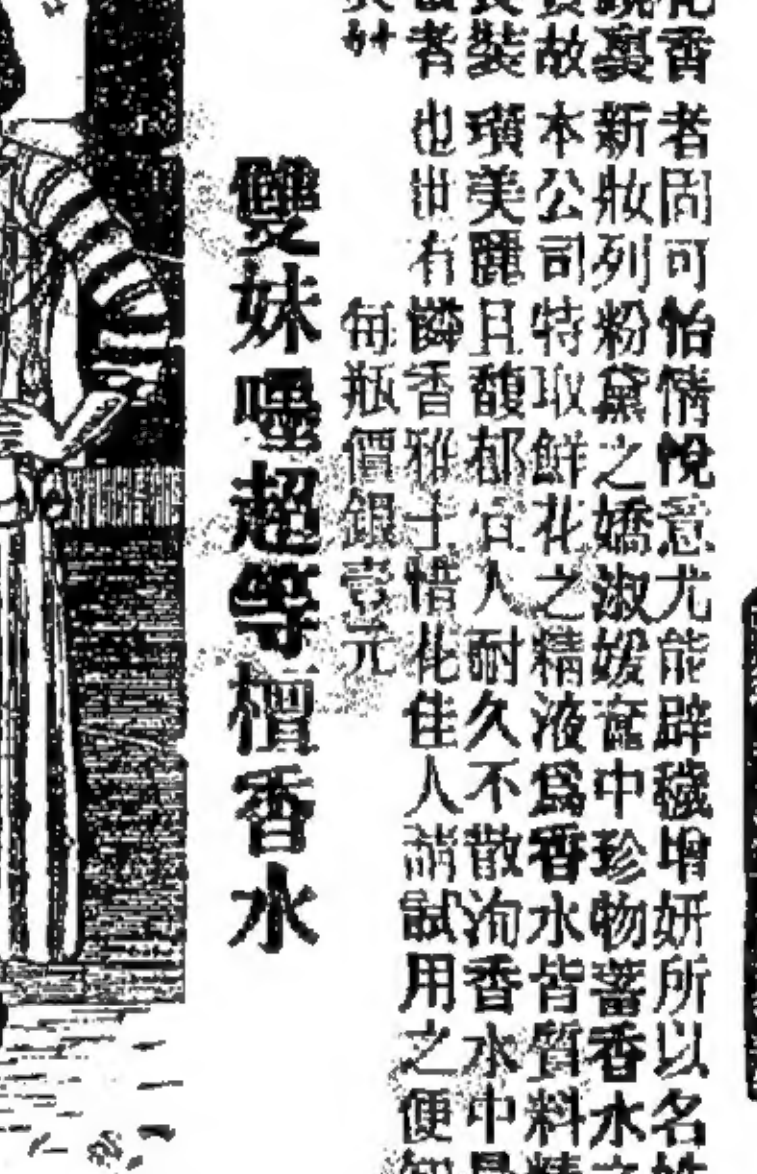 香者固可怡情悅意尤能辟穢增妍所以名
裏新妝列粉黛之嬌淑媛奩中珍物蓄香水
故本公司特取鮮花之精液爲香水皆質料精
裝璜美麗且馥郁宜人耐久不散洵香水中
者也世有憐香雅士惜花佳人請試用之便知
妙
每瓶價銀壹元
雙妹嚜超等檀香水